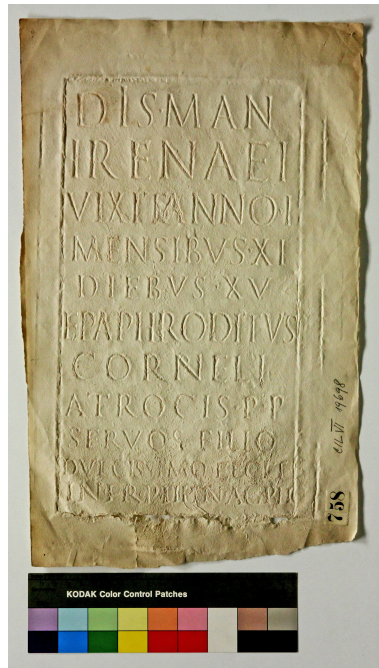 DIS MAN
IRENAEI
VIXIT ANNO I
MENSIBVS·XI
DIEBVS·XV
EPAPHRODITVS
CORNELI
ATROCIS·P·P
SERVOS FILIO
DVLCISSIMO FECIT
CIL VI 19698
758
KODAK Color Control Patches